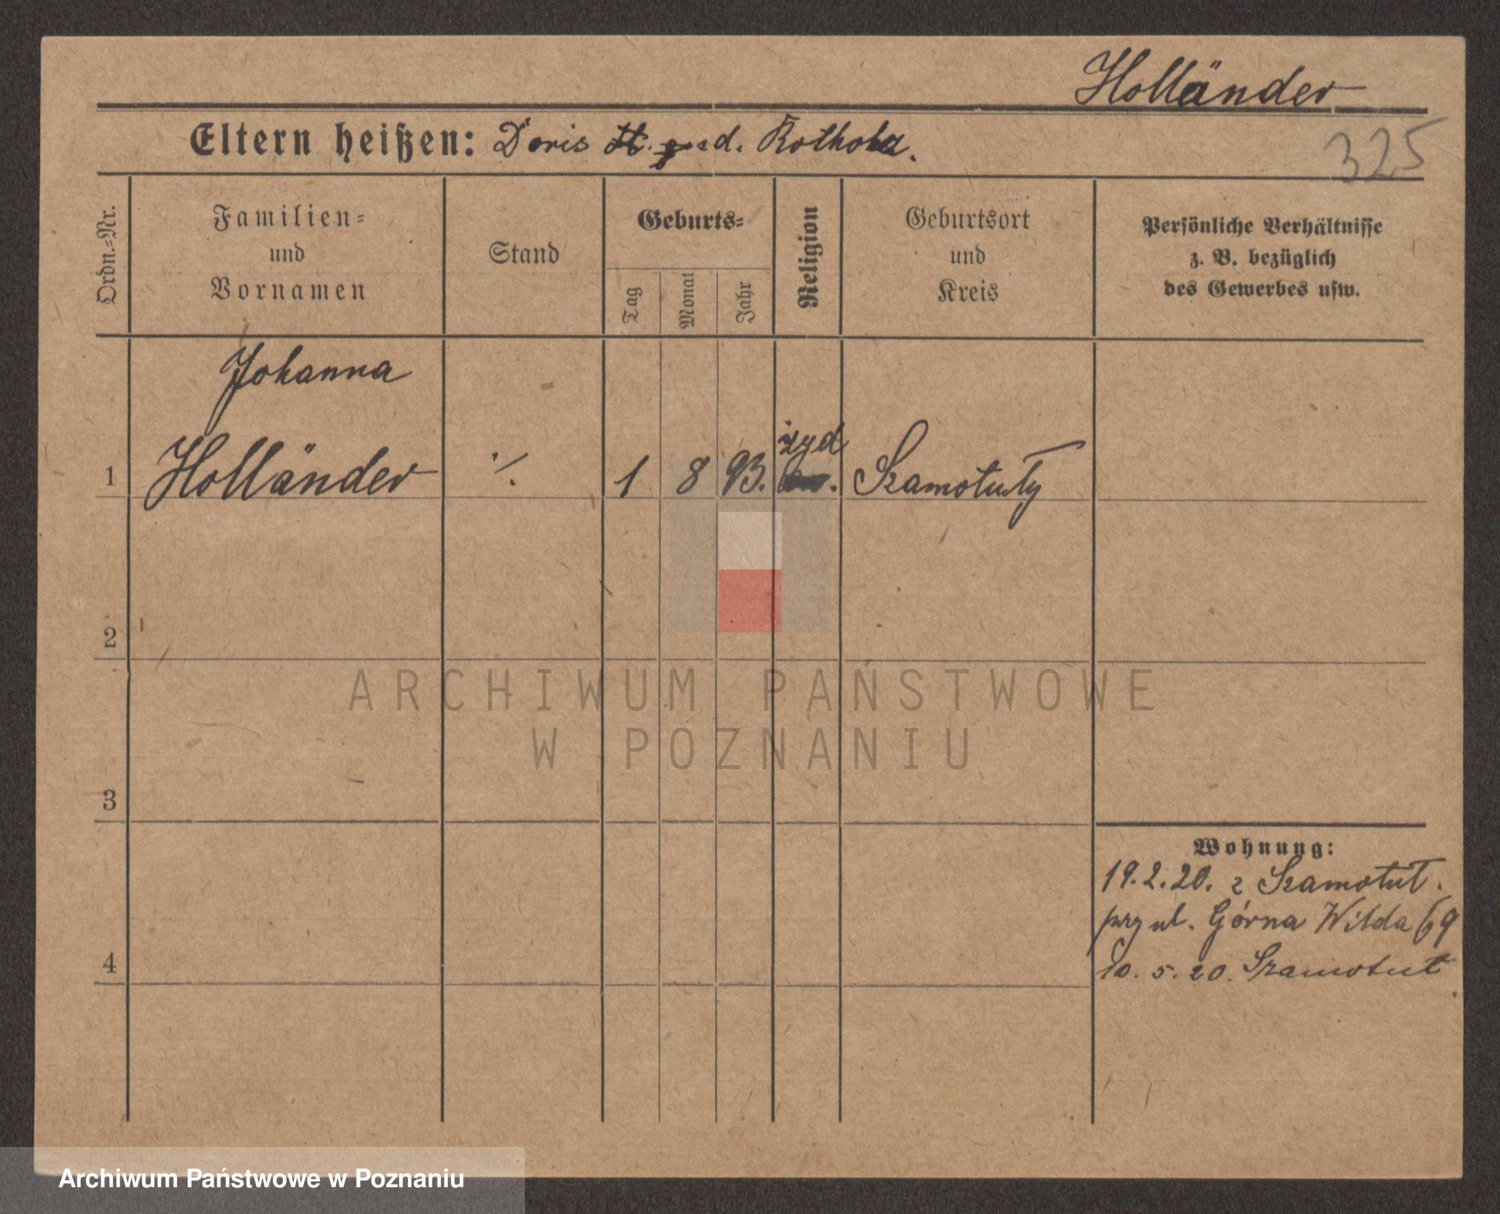 Holländer
325
Eltern heißen: Doris H. d. Rothold.
Ordn.=Nr.
Familien=
und
Vornamen
Stand
Geburts=
Tag
Monat
Jahr
Religion
Geburtsort
und
Kreis
Persönliche Verhältnisse
z. B. bezüglich
des Gewerbes usw.
Johanna
1 Holländer ·/. 1 8 93. żyd Szamotuły
2
3
4
Wohnung:
19.2.20. z Szamotuł.
przy ul. Górna Wilda 69
10.5.20. Szamotuł
ARCHIWUM PAŃSTWOWE
W POZNANIU
Archiwum Państwowe w Poznaniu